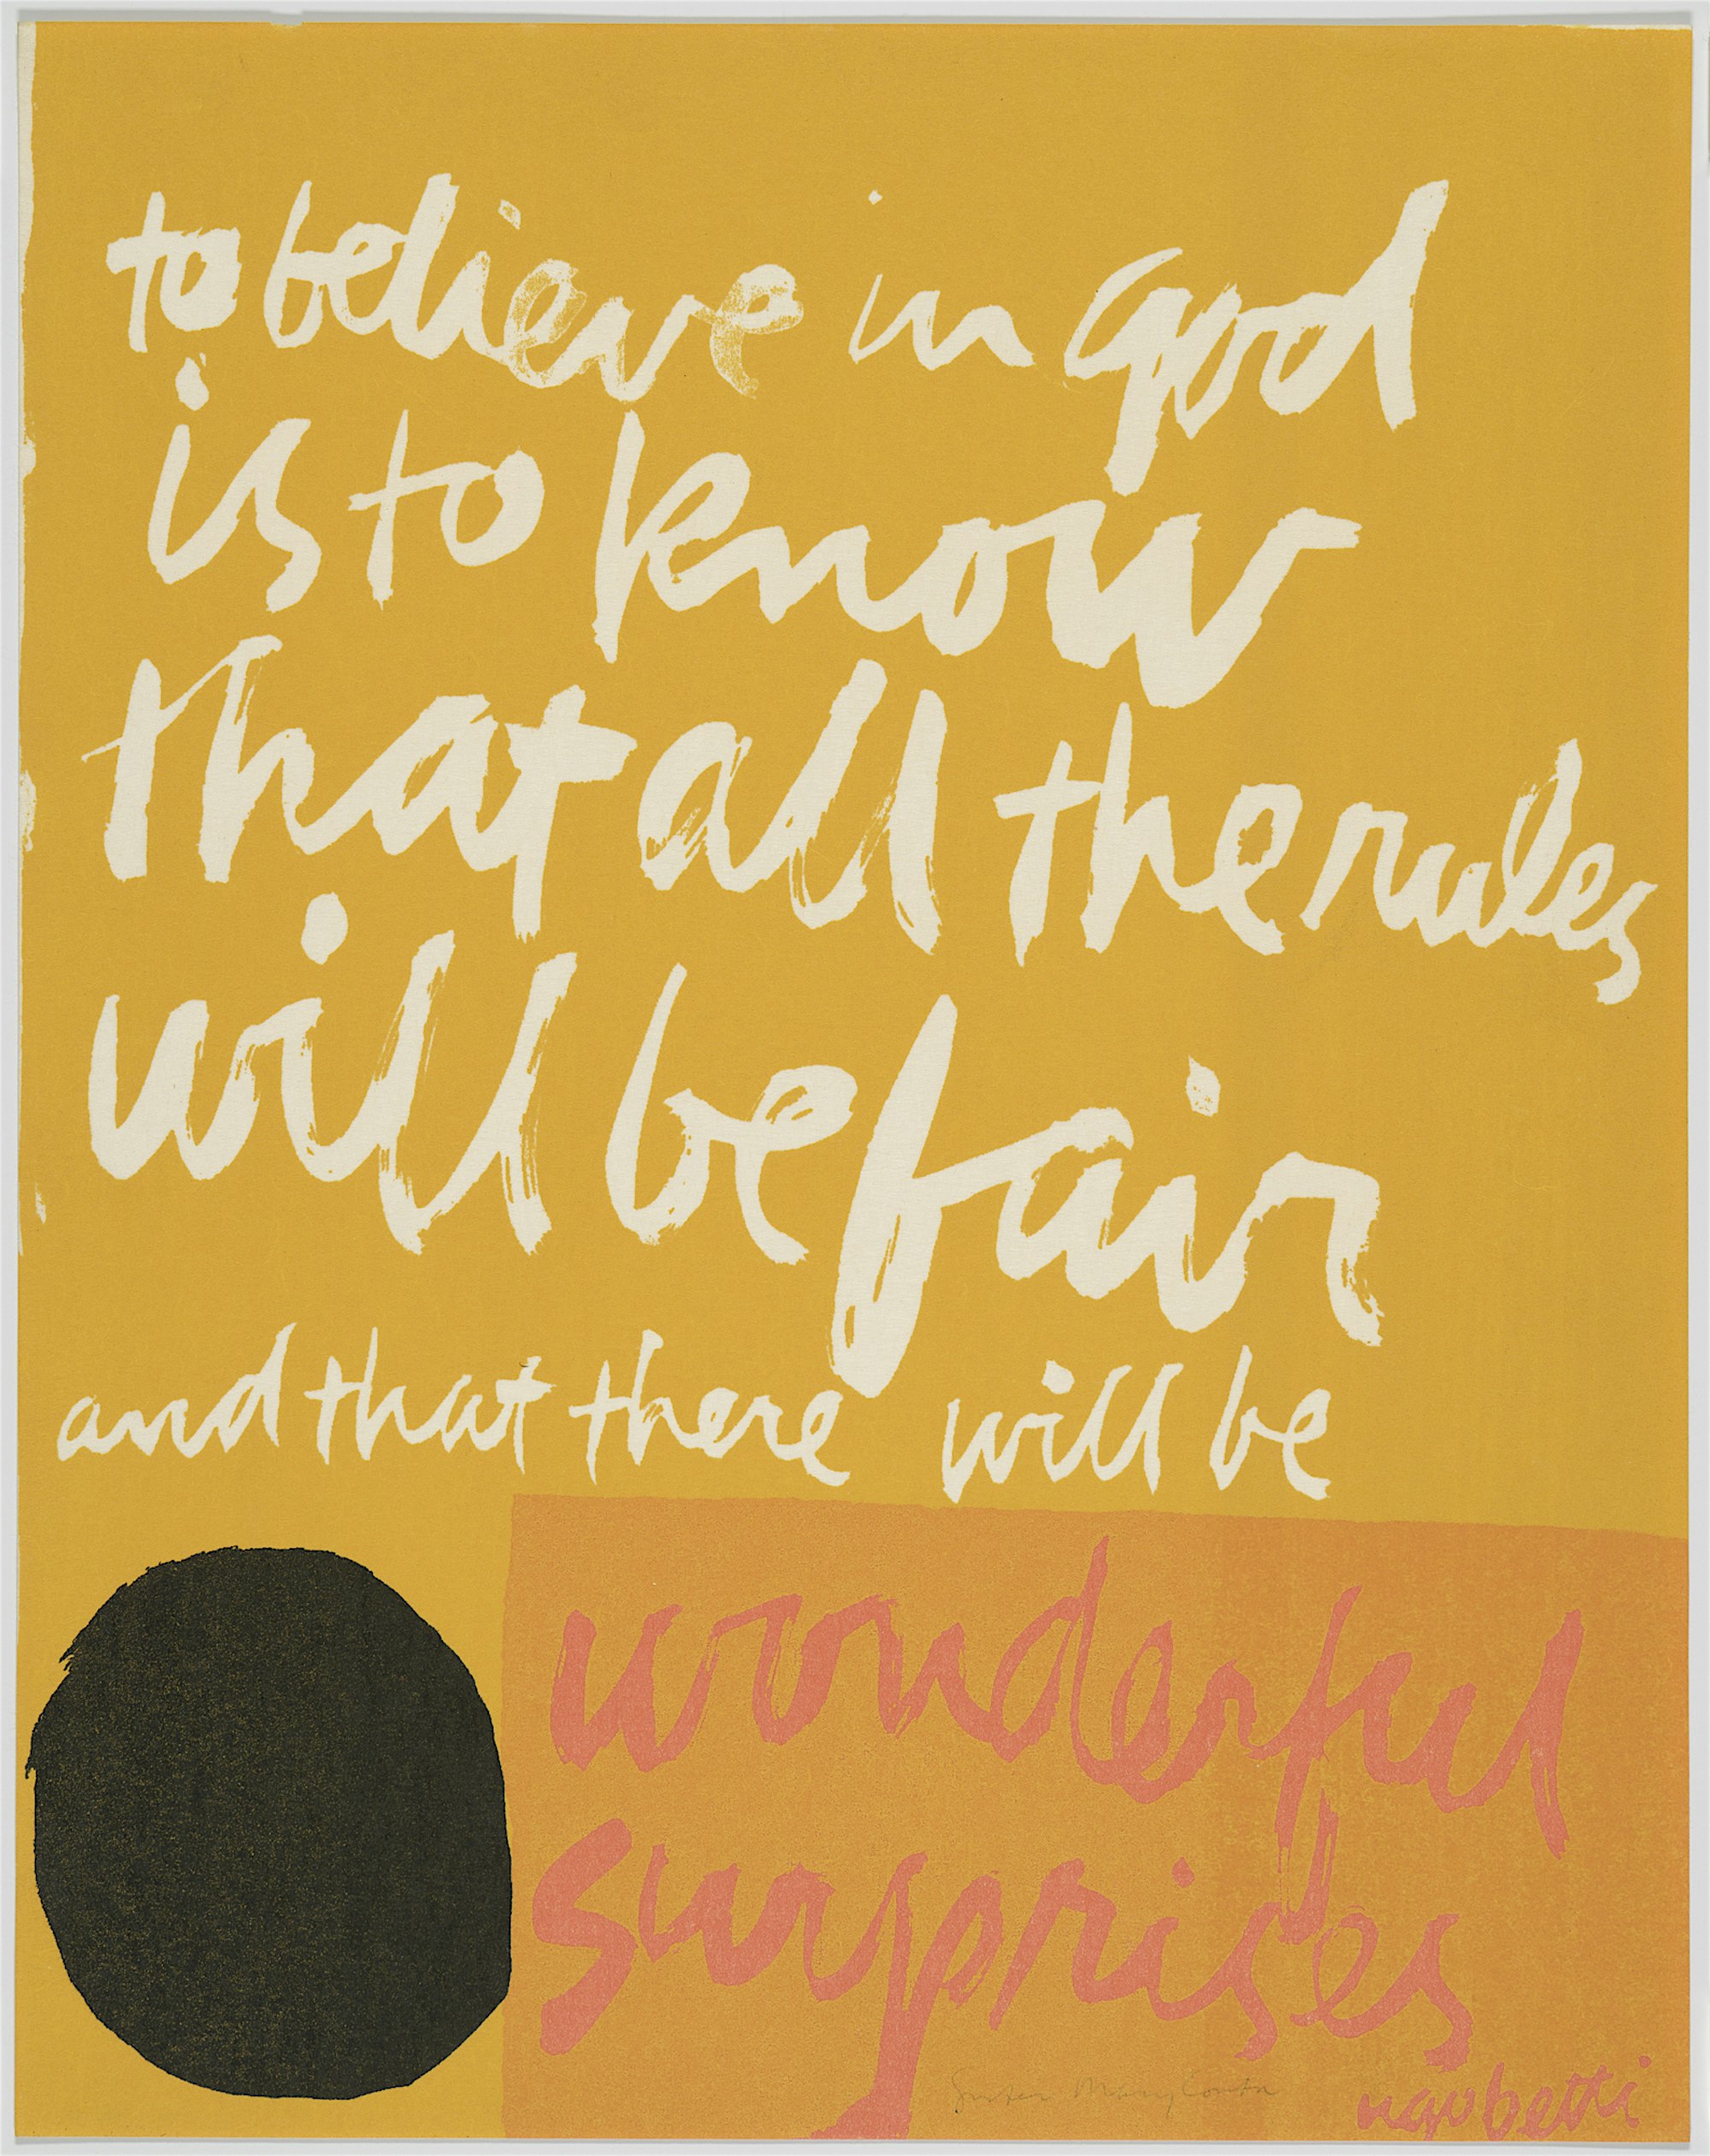 to believe in god
is to know
that all the rules
will be fair
and that there will be
wonderful
surprises
Sister Mary Corita
ugo betti